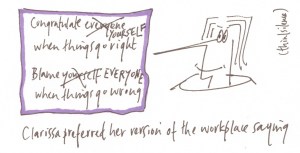 Congratulate everyone YOURSELF
when things go right
Blame yourself EVERYONE
when things go wrong
(thinksilence)
Clarissa preferred her version of the workplace saying